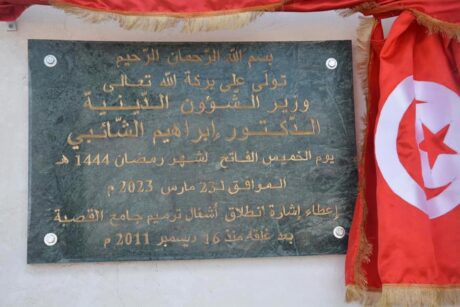 بسم الله الرّحمان الرّحيم
تولى على بركة الله تعالى
وزير الشّؤون الدّينية
الدّكتور إبراهيم الشّائبي
يوم الخميس الفاتح لشهر رمضان 1444 هـ
الموافق لـ23 مارس 2023 م
إعطاء إشارة انطلاق أشغال ترميم جامع القصبة
بعد غلقه منذ 16 ديسمبر 2011 م